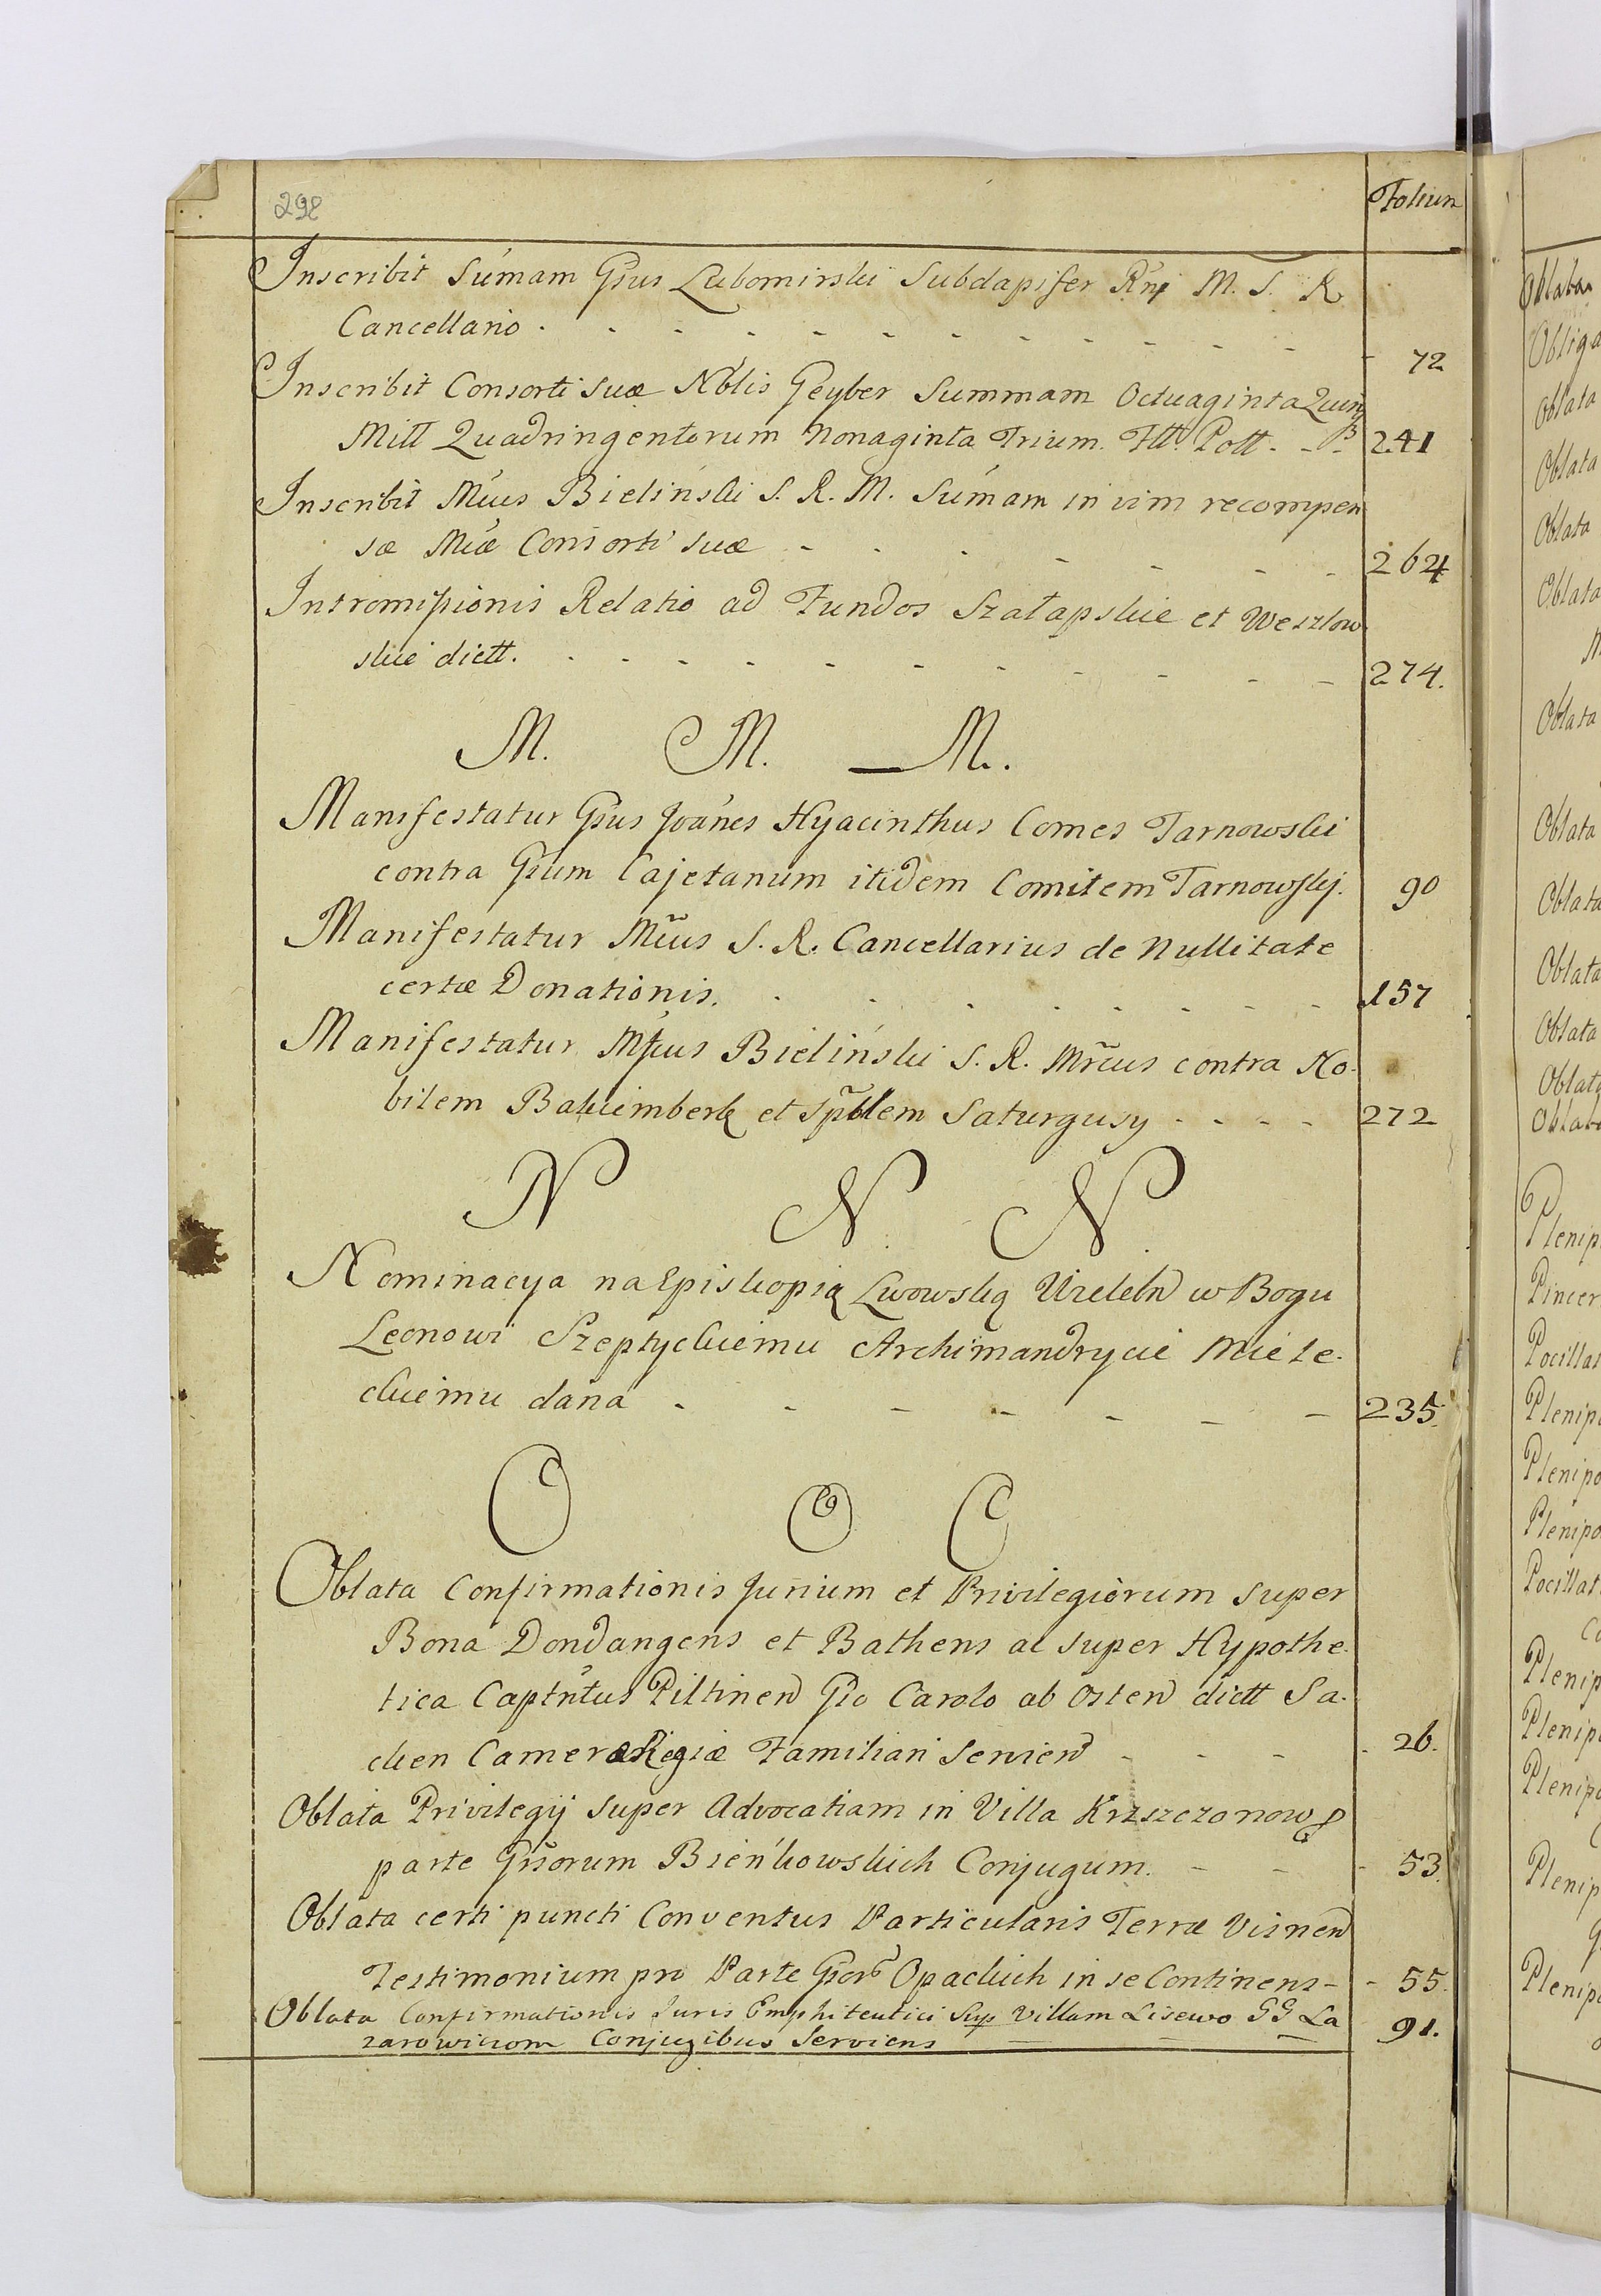 298
Folium
Inscribit Sum̃am Gsus Lubomirski Subdapifer Rni M. S. R.
Cancellario . - - - - - - - - - - 72
Inscribit Consorti suæ Nblis Geyber Summam Octuaginta Quinq
Mill Quadringentorum Nonaginta Trium. Fll. Poll. - - 241
Inscribit Mcus Bielinski S. R. M. Sumam in vim recompen
sæ Mcæ Consorti suæ - - - - - - - 264
Intromissionis Relatio ad Fundos Szałapskie et Weszlow
skie dictt. - - - - - - - - - 274.
M. M. M.
Manifestatur Gsus Joanes Hyacinthus Comes Tarnowski
contra Gsum Cajetanum itidem Comitem Tarnowskj. 90
Manifestatur Mcus S. R. Cancellarius de Nullitate
certæ Donationis. - - - - - - - - 157
Manifestatur Mcus Bieliński S. R. Mrcus contra No-
bilem et Spblem Saturgusy - - - - 272
N N N
Nominacya na Episkopią Lwowską Wieleb w Bogu
Leonowi Szeptyckiemu Archimandrycie Miele-
ckiemu dana - - - - - - - 235.
O O O
Oblata Confirmationis Jurium et Privilegiorum super
Bona Dondangens et Bathens ac super Hypothe-
tica Captntus Piltinen Gso Carolo ab Osten dictt Sa-
cken Cameræ Regiæ Familiari Servien - - - - 26.
Oblata Privilegij super Advocatiam in Villa Krzszczonow
parte Gsrorum Bieńkowskich Conjugum. - - - 53.
Oblata certi puncti Conventus Particularis Terræ Visnen
Testimonium pro Parte Gsor Opackich in se Continens - - 55.
Oblata Confirmationis Juris Emphiteutici Sup Villam Lisewo GG La
zarowiczom Conjugibus Serviens - - - 91.